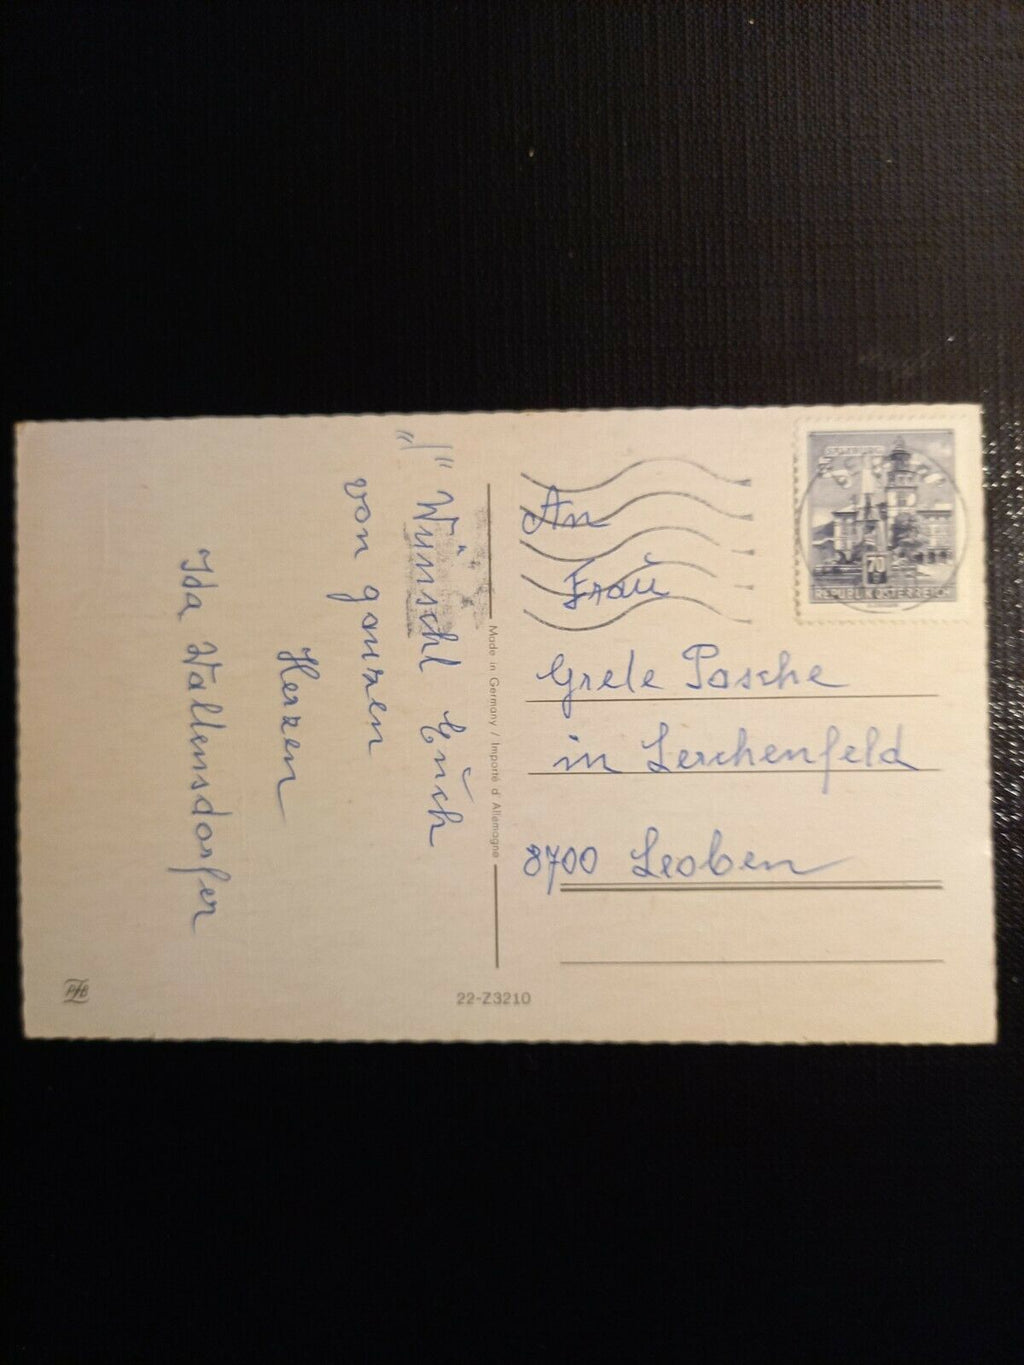 "/" Wünscht Euch
von ganzen
Herzen
Ida Wallensdorfer
Made in Germany / Importé d'Allemagne
An
Frau
Grete Pasche
in Lerchenfeld
8700 Leoben
70
REPUBLIK ÖSTERREICH
22-Z3210